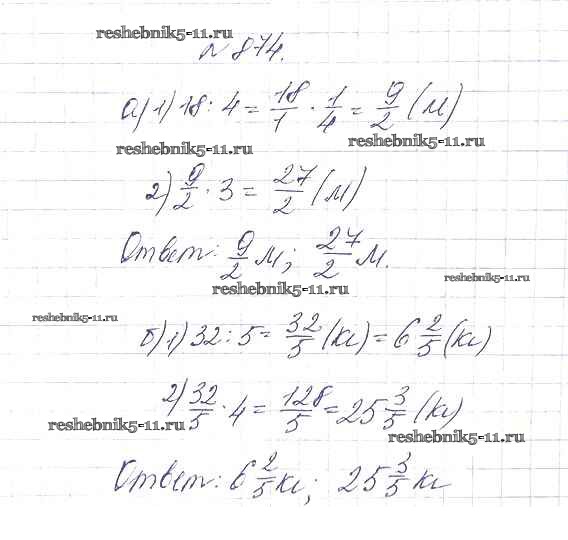 reshebnik5-11.ru
№ 874.
а) 1) 18 : 4 = 18/1 · 1/4 = 9/2 (м)
reshebnik5-11.ru
reshebnik5-11.ru
2) 9/2 · 3 = 27/2 (м)
Ответ: 9/2 м; 27/2 м.
reshebnik5-11.ru
reshebnik5-11.ru
reshebnik5-11.ru
б) 1) 32 : 5 = 32/5 (кг) = 6 2/5 (кг)
2) 32/5 · 4 = 128/5 = 25 3/5 (кг)
reshebnik5-11.ru
reshebnik5-11.ru
Ответ: 6 2/5 кг; 25 3/5 кг